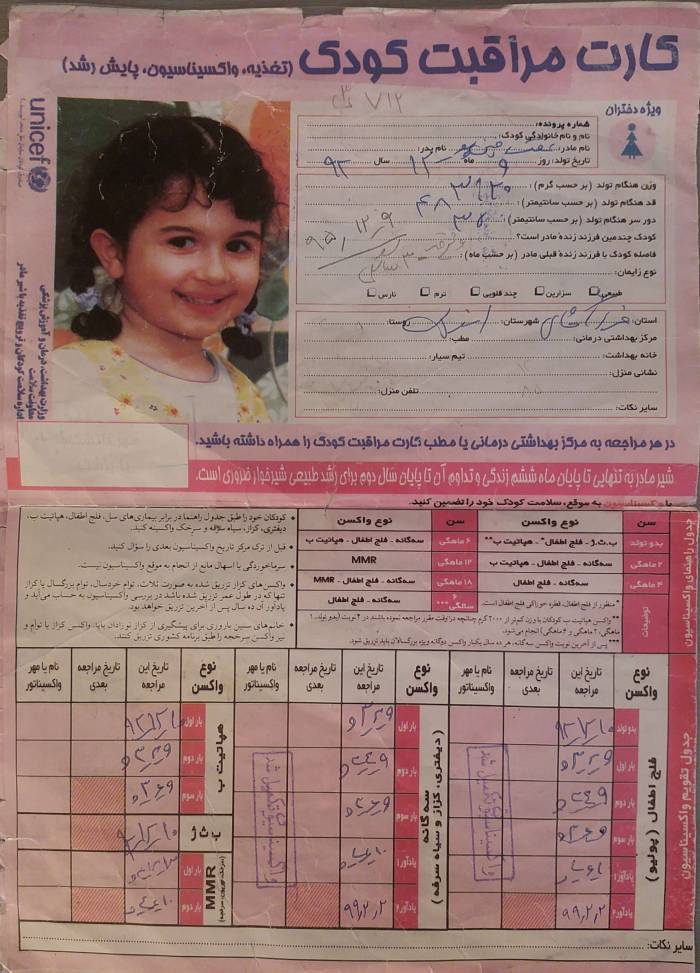 کارت مراقبت کودک (تغذیه، واکسیناسیون، پایش رشد)
ویژه دختران
unicef
۷۱۲
شماره پرونده:
نام و نام خانوادگی کودک:
نام مادر: نام پدر:
تاریخ تولد: روز ۹ ماه ۱۲ سال ۹۲
وزن هنگام تولد (بر حسب گرم):
قد هنگام تولد (بر حسب سانتیمتر): ۴۸
دور سر هنگام تولد (بر حسب سانتیمتر):
کودک چندمین فرزند زنده مادر است؟
فاصله کودک با فرزند زنده قبلی مادر (بر حسب ماه):
نوع زایمان:
طبیعی سزارین چند قلویی ترم نارس
استان: شهرستان: روستا:
مرکز بهداشتی درمانی: مطب:
خانه بهداشت: تیم سیار:
نشانی منزل:
تلفن منزل:
سایر نکات:
وزارت بهداشت، درمان و آموزش پزشکی
معاونت سلامت
اداره سلامت کودکان و ترویج تغذیه با شیر مادر
در هر مراجعه به مرکز بهداشتی درمانی یا مطب کارت مراقبت کودک را همراه داشته باشید.
شیر مادر به تنهایی تا پایان ماه ششم زندگی و تداوم آن تا پایان سال دوم برای رشد طبیعی شیرخوار ضروری است.
با واکسیناسیون به موقع، سلامت کودک خود را تضمین کنید.
جدول راهنمای واکسیناسیون
سن نوع واکسن سن نوع واکسن
بدو تولد ب.ث.ژ - فلج اطفال* - هپاتیت ب** ۶ ماهگی سه‌گانه - فلج اطفال - هپاتیت ب
۲ ماهگی سه‌گانه - فلج اطفال - هپاتیت ب ۱۲ ماهگی MMR
۴ ماهگی سه‌گانه - فلج اطفال ۱۸ ماهگی سه‌گانه - فلج اطفال - MMR
۶ سالگی*** سه‌گانه - فلج اطفال
توضیحات
* منظور از فلج اطفال، قطره خوراکی فلج اطفال است.
** واکسن هپاتیت ب کودکان با وزن کمتر از ۲۰۰۰ گرم چنانچه در وقت مقرر مراجعه نموده باشند در ۴ نوبت (بدو تولد، ۱ ماهگی، ۲ ماهگی و ۶ ماهگی) انجام می‌شود.
*** پس از آخرین نوبت واکسن سه‌گانه، هر ده سال یکبار واکسن دوگانه ویژه بزرگسالان باید تزریق شود.
• کودکان خود را طبق جدول راهنما در برابر بیماری‌های سل، فلج اطفال، هپاتیت ب، دیفتری، کزاز، سیاه سرفه و سرخک واکسینه کنید.
• قبل از ترک مرکز تاریخ واکسیناسیون بعدی را سؤال کنید.
• سرماخوردگی یا اسهال مانع از انجام به موقع واکسیناسیون نیست.
• واکسن های کزاز تزریق شده به صورت ثلاث، توام خردسال، توام بزرگسال یا کزاز تنها که در طول عمر تزریق شده باشد در بررسی واکسیناسیون به حساب می‌آید و یادآور آن ده سال پس از آخرین تزریق خواهد بود.
• خانم های سنین باروری برای پیشگیری از کزاز نوزادان باید: واکسن کزاز یا توام و نیز واکسن سرخجه را طبق برنامه کشوری تزریق کنند.
جدول تقویم واکسیناسیون
نوع واکسن تاریخ این مراجعه تاریخ مراجعه بعدی نام یا مهر واکسیناتور
فلج اطفال (پولیو)
بدو تولد
بار اول
بار دوم
بار سوم
یادآور ۱
یادآور ۲ ۹۹,۲,۲
واکسیناسیون تکمیل شد
نوع واکسن تاریخ این مراجعه تاریخ مراجعه بعدی نام یا مهر واکسیناتور
سه گانه (دیفتری، کزاز و سیاه سرفه)
بار اول
بار دوم
بار سوم
یادآور ۱
یادآور ۲ ۹۹,۲,۲
واکسیناسیون تکمیل شد
نوع واکسن تاریخ این مراجعه تاریخ مراجعه بعدی نام یا مهر واکسیناتور
هپاتیت ب
بار اول
بار دوم
بار سوم
ب ث ژ
MMR (سرخک، اوریون، سرخجه)
بار اول
بار دوم
سایر نکات: